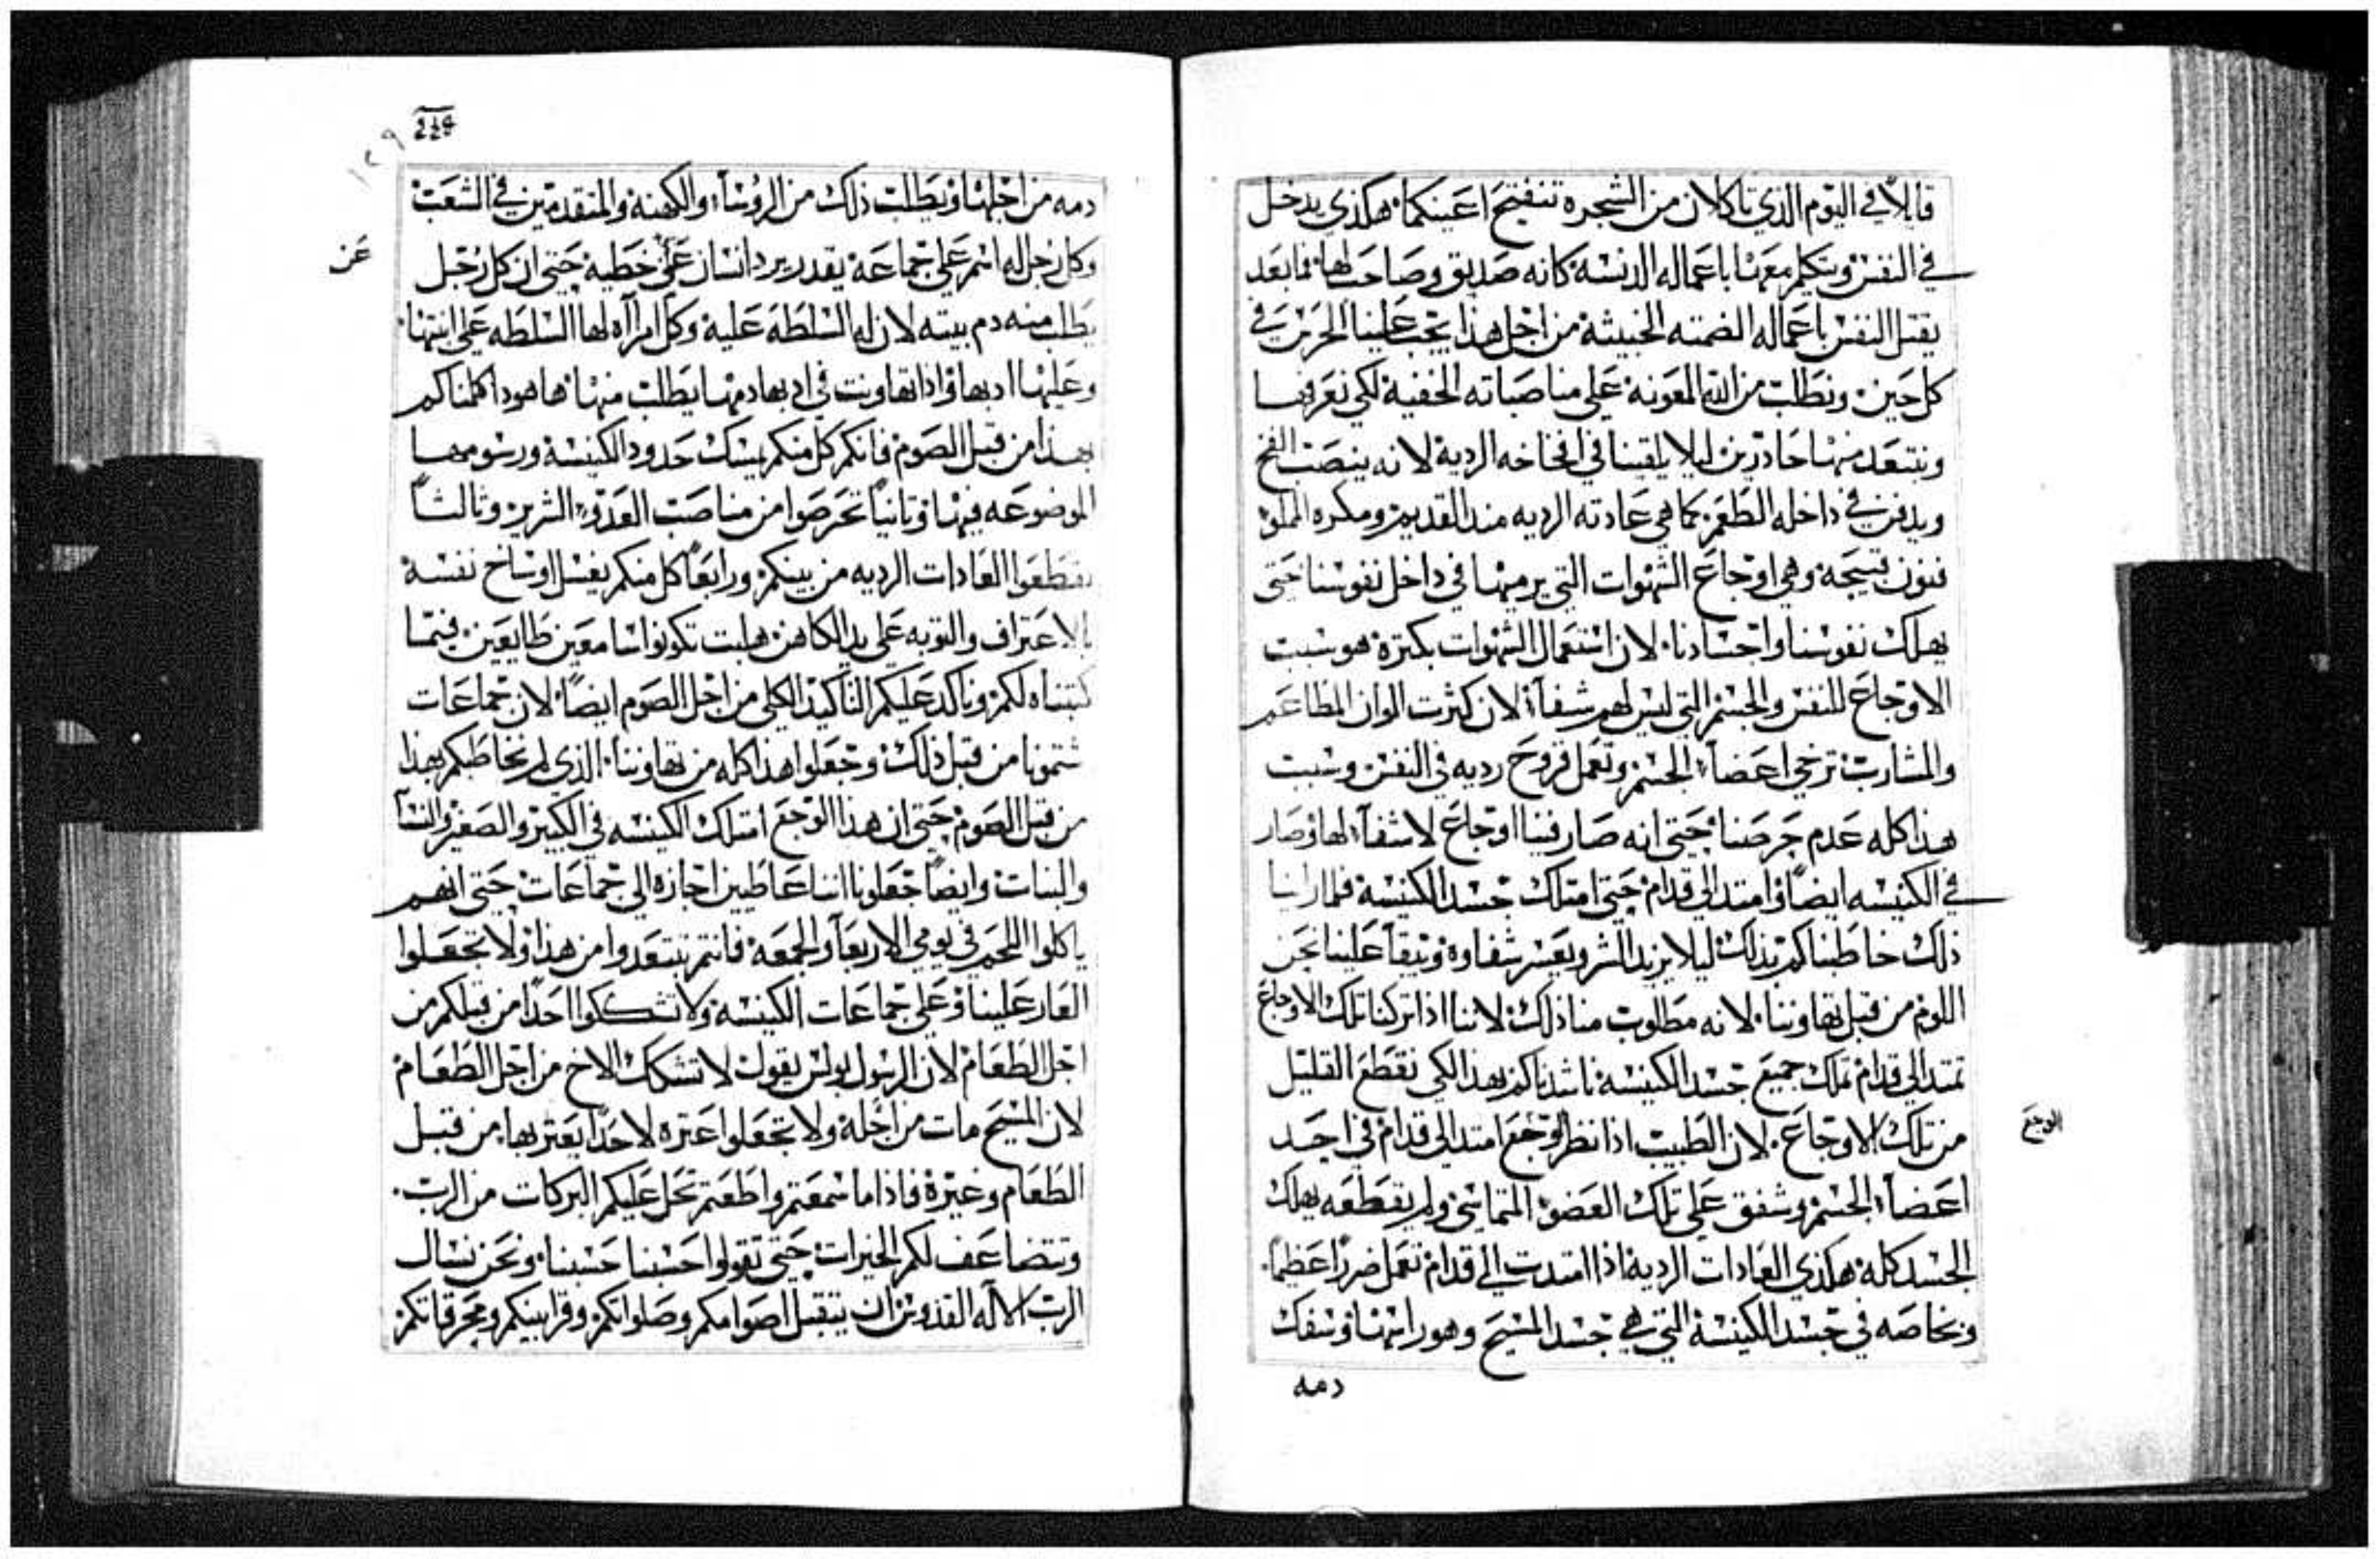 قايلاً في اليوم الذي تاكلان من الشجره تنفتح اعينكما هكذي يدخل
في النفس ويتكلم معها باعماله الدنسة كانه صديق وصاحب لها فما بعد
يقتل النفس باعماله الخبيثة من اجل هذا يجب علينا الحرص في
كل حين ونطلب من الله المعونة على مناصباته الخفية لكي نعرفها
ونبتعد منها حادرين ليلا يلقينا في افخاخه الردية لانه ينصب الفخ
ويدفن في داخله الطعم كما هي عادته الرديه مند القديم ومكره
فنون قبيحة وهي اوجاع الشهوات التي يرميها في داخل نفوسنا حتى
يهلك نفوسنا واجسادنا لان استعمال الشهوات بكترة هو سبب
الاوجاع للنفس والجسم التي ليس لهم شفآء لان كثرت الوان المطاعم
والمشارب ترخي اعضآء الجسم وتعمل قروح رديه في النفس وسبب
هذا كله عدم حرصنا حتى انه صار فينا اوجاع لا شفآء لها وصار
في الكنيسه ايضاً وامتد الي قدام حتى امتلك جسد الكنيسة فلما راينا
ذلك خاطبناكم بذلك ليلا يزيد الشر ويعسر شفاوه وتبقآ علينا نحن
اللوم من قبل تهاوننا لانه مطلوب منا ذلك لاننا اذا تركنا تلك الاوجاع
تمتد الي قدام تملك جميع جسد الكنيسة ناشدناكم بهذا لكي نقطع القليل
من تلك الاوجاع لان الطبيب اذا نظر الوجع امتد الى قدام في احد
الوجع
اعضآء الجسم وشفق على تلك العضو ولم يقطعه يهلك
الجسد كله هكذي العادات الردية اذا امتدت الي قدام تعمل ضرراً عظيماً
وبخاصه في جسد الكنيسة التي هي جسد المسيح وهو راسها وسفك
دمه
224
١٢٩
دمه من اجلها ونطلب ذلك من الروسآء والكهنه والمتقدمين في الشعب
وكل رجل له اسم على جماعة يقدر يرد انسان عن خطية حتى ان كل رجل
عن
يطلب منه دم بيته لان له السلطة علية وكل امراآه لها السلطه على ابنتها
وعليها ادبها واذا تهاونت في ادبها دمها يطلب منها ها هودا كلمناكم
بهذا من قبل الصوم فانكم كل منكم يمسك حدود الكنيسة ورسومها
الموضوعه فيها وتانياً تحرصوا من مناصب العدو الشرير وتالثاً
تقطعوا العادات الرديه من بينكم ورابعاً كل منكم يغسل اوساخ نفسة
بالاعتراف والتوبه على يد الكاهن تكونوا سامعين طايعين فيما
كتبناه لكم وناكد عليكم التاكيد الكلي من اجل الصوم ايضاً لان جماعات
شتمونا من قبل ذلك وجعلوا هذا كله من تهاوننا الذي لم نخاطبكم بهذا
من قبل الصوم حتى ان هذا الوجع امتلك الكنيسه في الكبير والصغير والنسآ
والبنات وايضاً جعلونا اننا عاطيين اجازه الى جماعات حتى انهم
ياكلوا اللحم في يومي الاربعآ والجمعه فانتم تبتعدوا من هذا ولا تجعلوا
العار علينا وعلى جماعات الكنيسة ولا تشككوا احداً من قبلكم من
اجل الطعام لان الرسول بولس يقول لا تشكك الاخ من اجل الطعام
لان المسيح مات من اجله ولا تجعلوا عتره لاحداً يعتر بها من قبل
الطعام وغيره فاذا ما سمعتم واطعتم تحل عليكم البركات من الرب
وتتضاعف لكم الخيرات حتى تقولوا حسبنا حسبنا ونحن نسال
الرب الآله القدوس ان يتقبل اصوامكم وصلواتكم وقرابينكم ومحرقاتكم